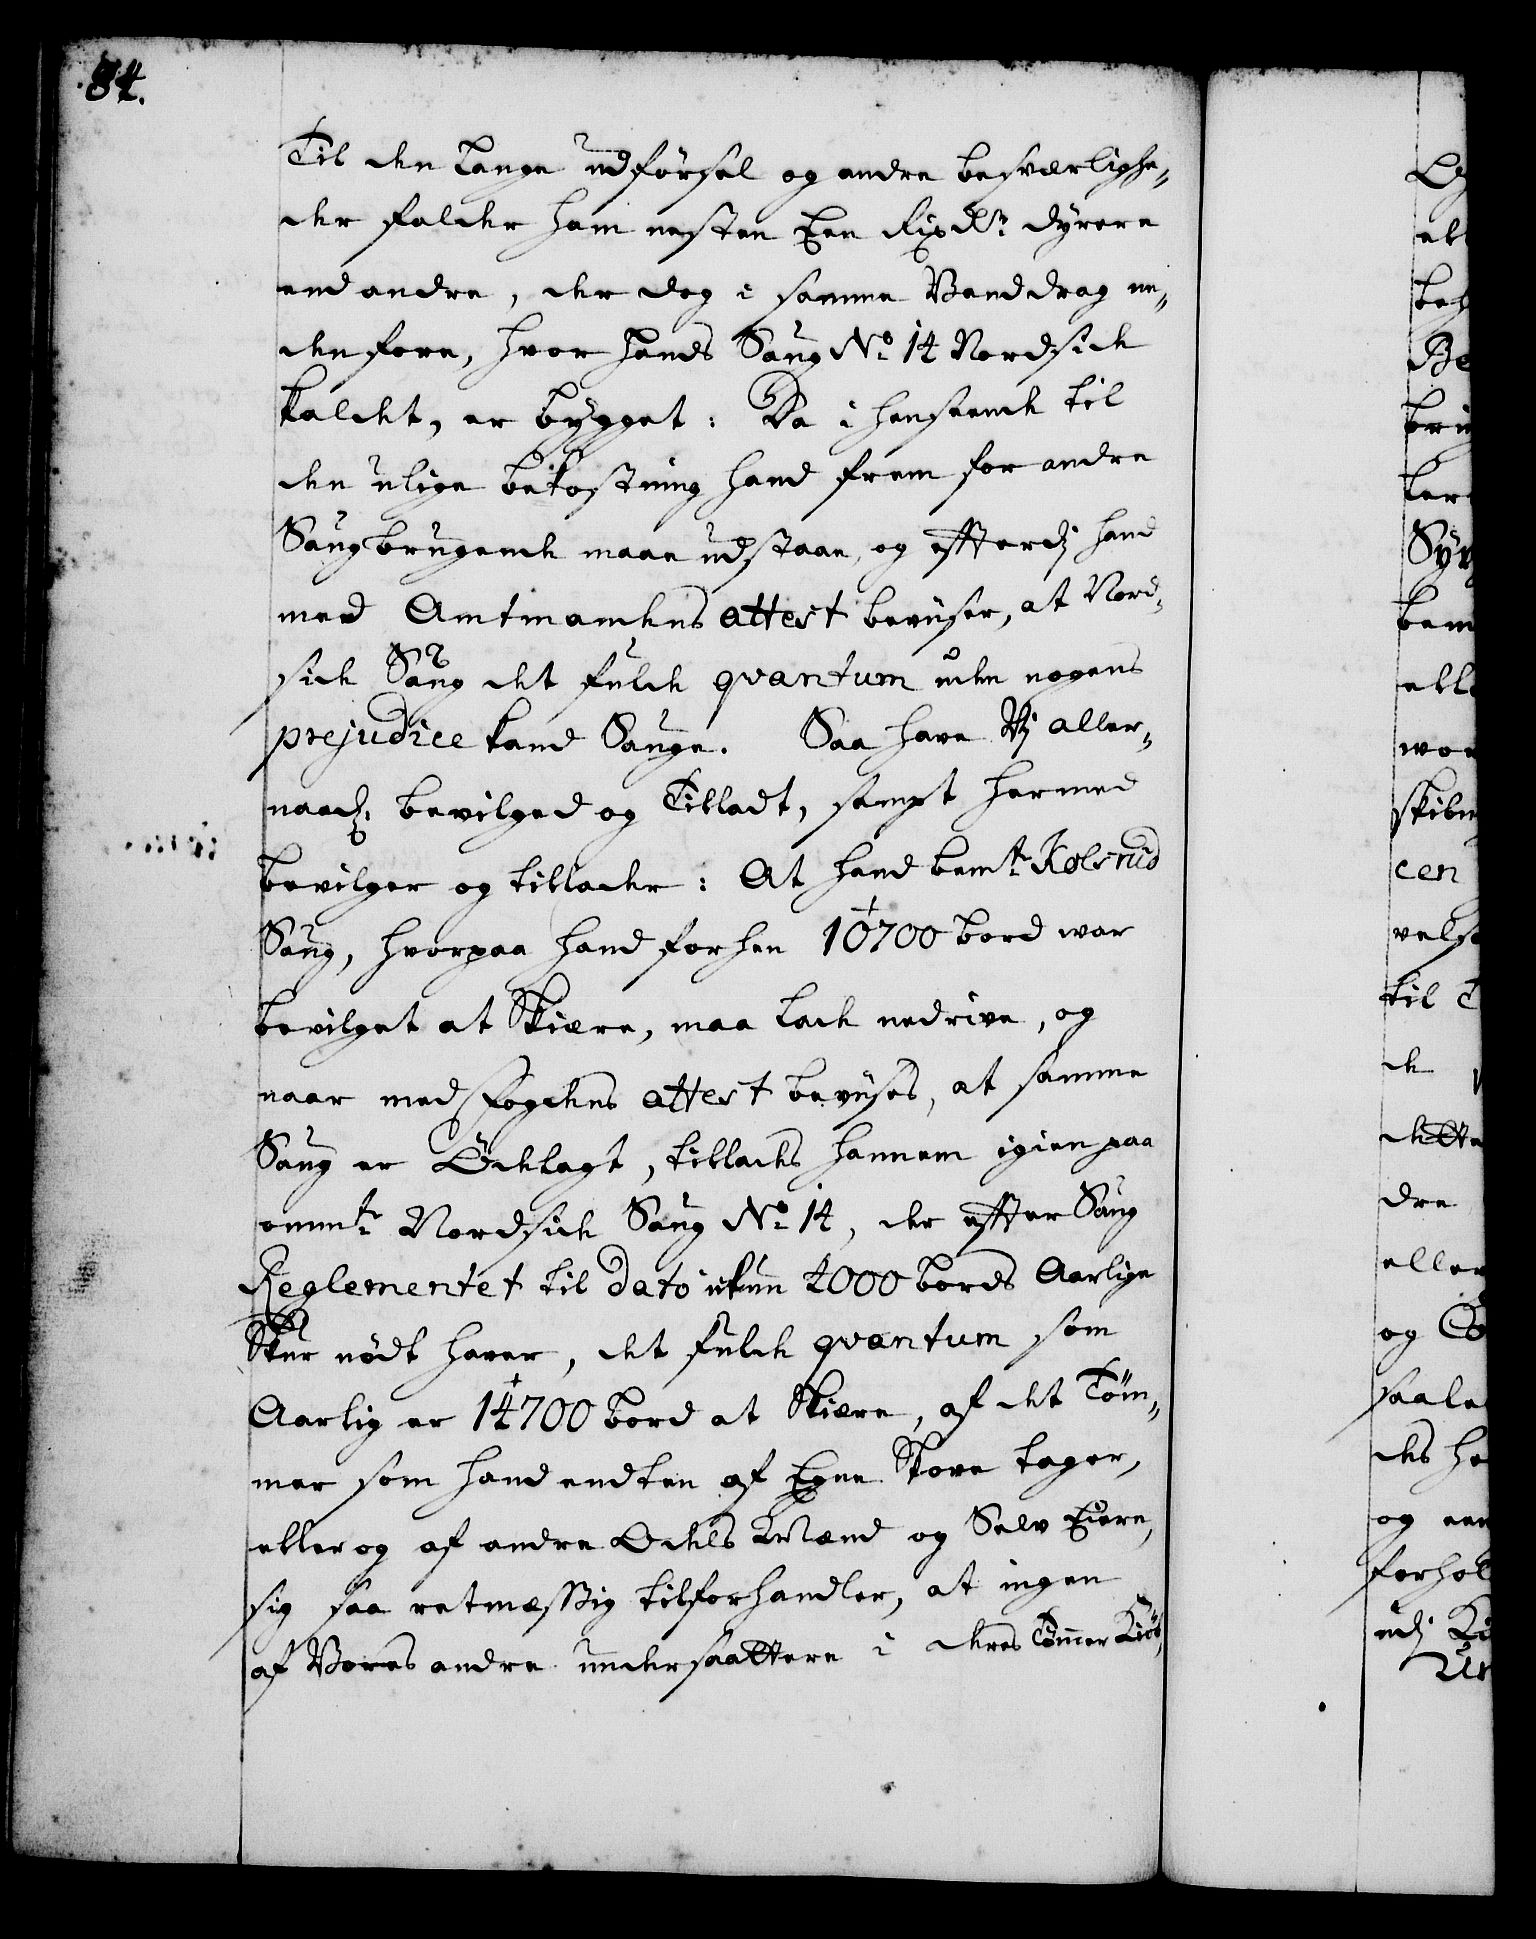 84.
Til den lange udförsel og andre besværlighe,,
der falder ham nesten Een Rixdlr. dyrere
end andre, der dog i samme Vanddrag ne,,
denfore, hvor hands Saug No. 14 Nordside
kaldet, er bygget: Da i henseende til
den ulige bekostning hand frem for andre
Saugbrugende maae udstaae, og efterdj hand
med Amtmandens attest beviiser, at Nord,,
side Saug det fulde qvantum uden nogens
prejudice kand Sauge. Saa have Vj aller,,
naadg. bevilged og Tilladt, sampt hermed
bevilger og tillader: At hand bemte. Kølsrud
Saug, hvorpaa hand forhen 10700 bord war
bevilget at Skiære, maa lade nedrive, og
naar med Fogdens attest beviises, at samme
Saug er Ödelagt, tillades hannem igien paa
ommte. Nordside Saug No. 14, der efter Saug
Reglementet til dato ikun 4000 bords Aarlige
Skur nödt haver, det fulde qvantum som
Aarlig er 14700 bord at Skiære, af det Töm,,
mer som hand endten af Egne Skove tager,
eller og af andre Odels Mænd og Selv Eiere,
sig saa retmæssig tilforhandler, at ingen
af Vores andre undersaattere i deres Tömmer Kiöb,